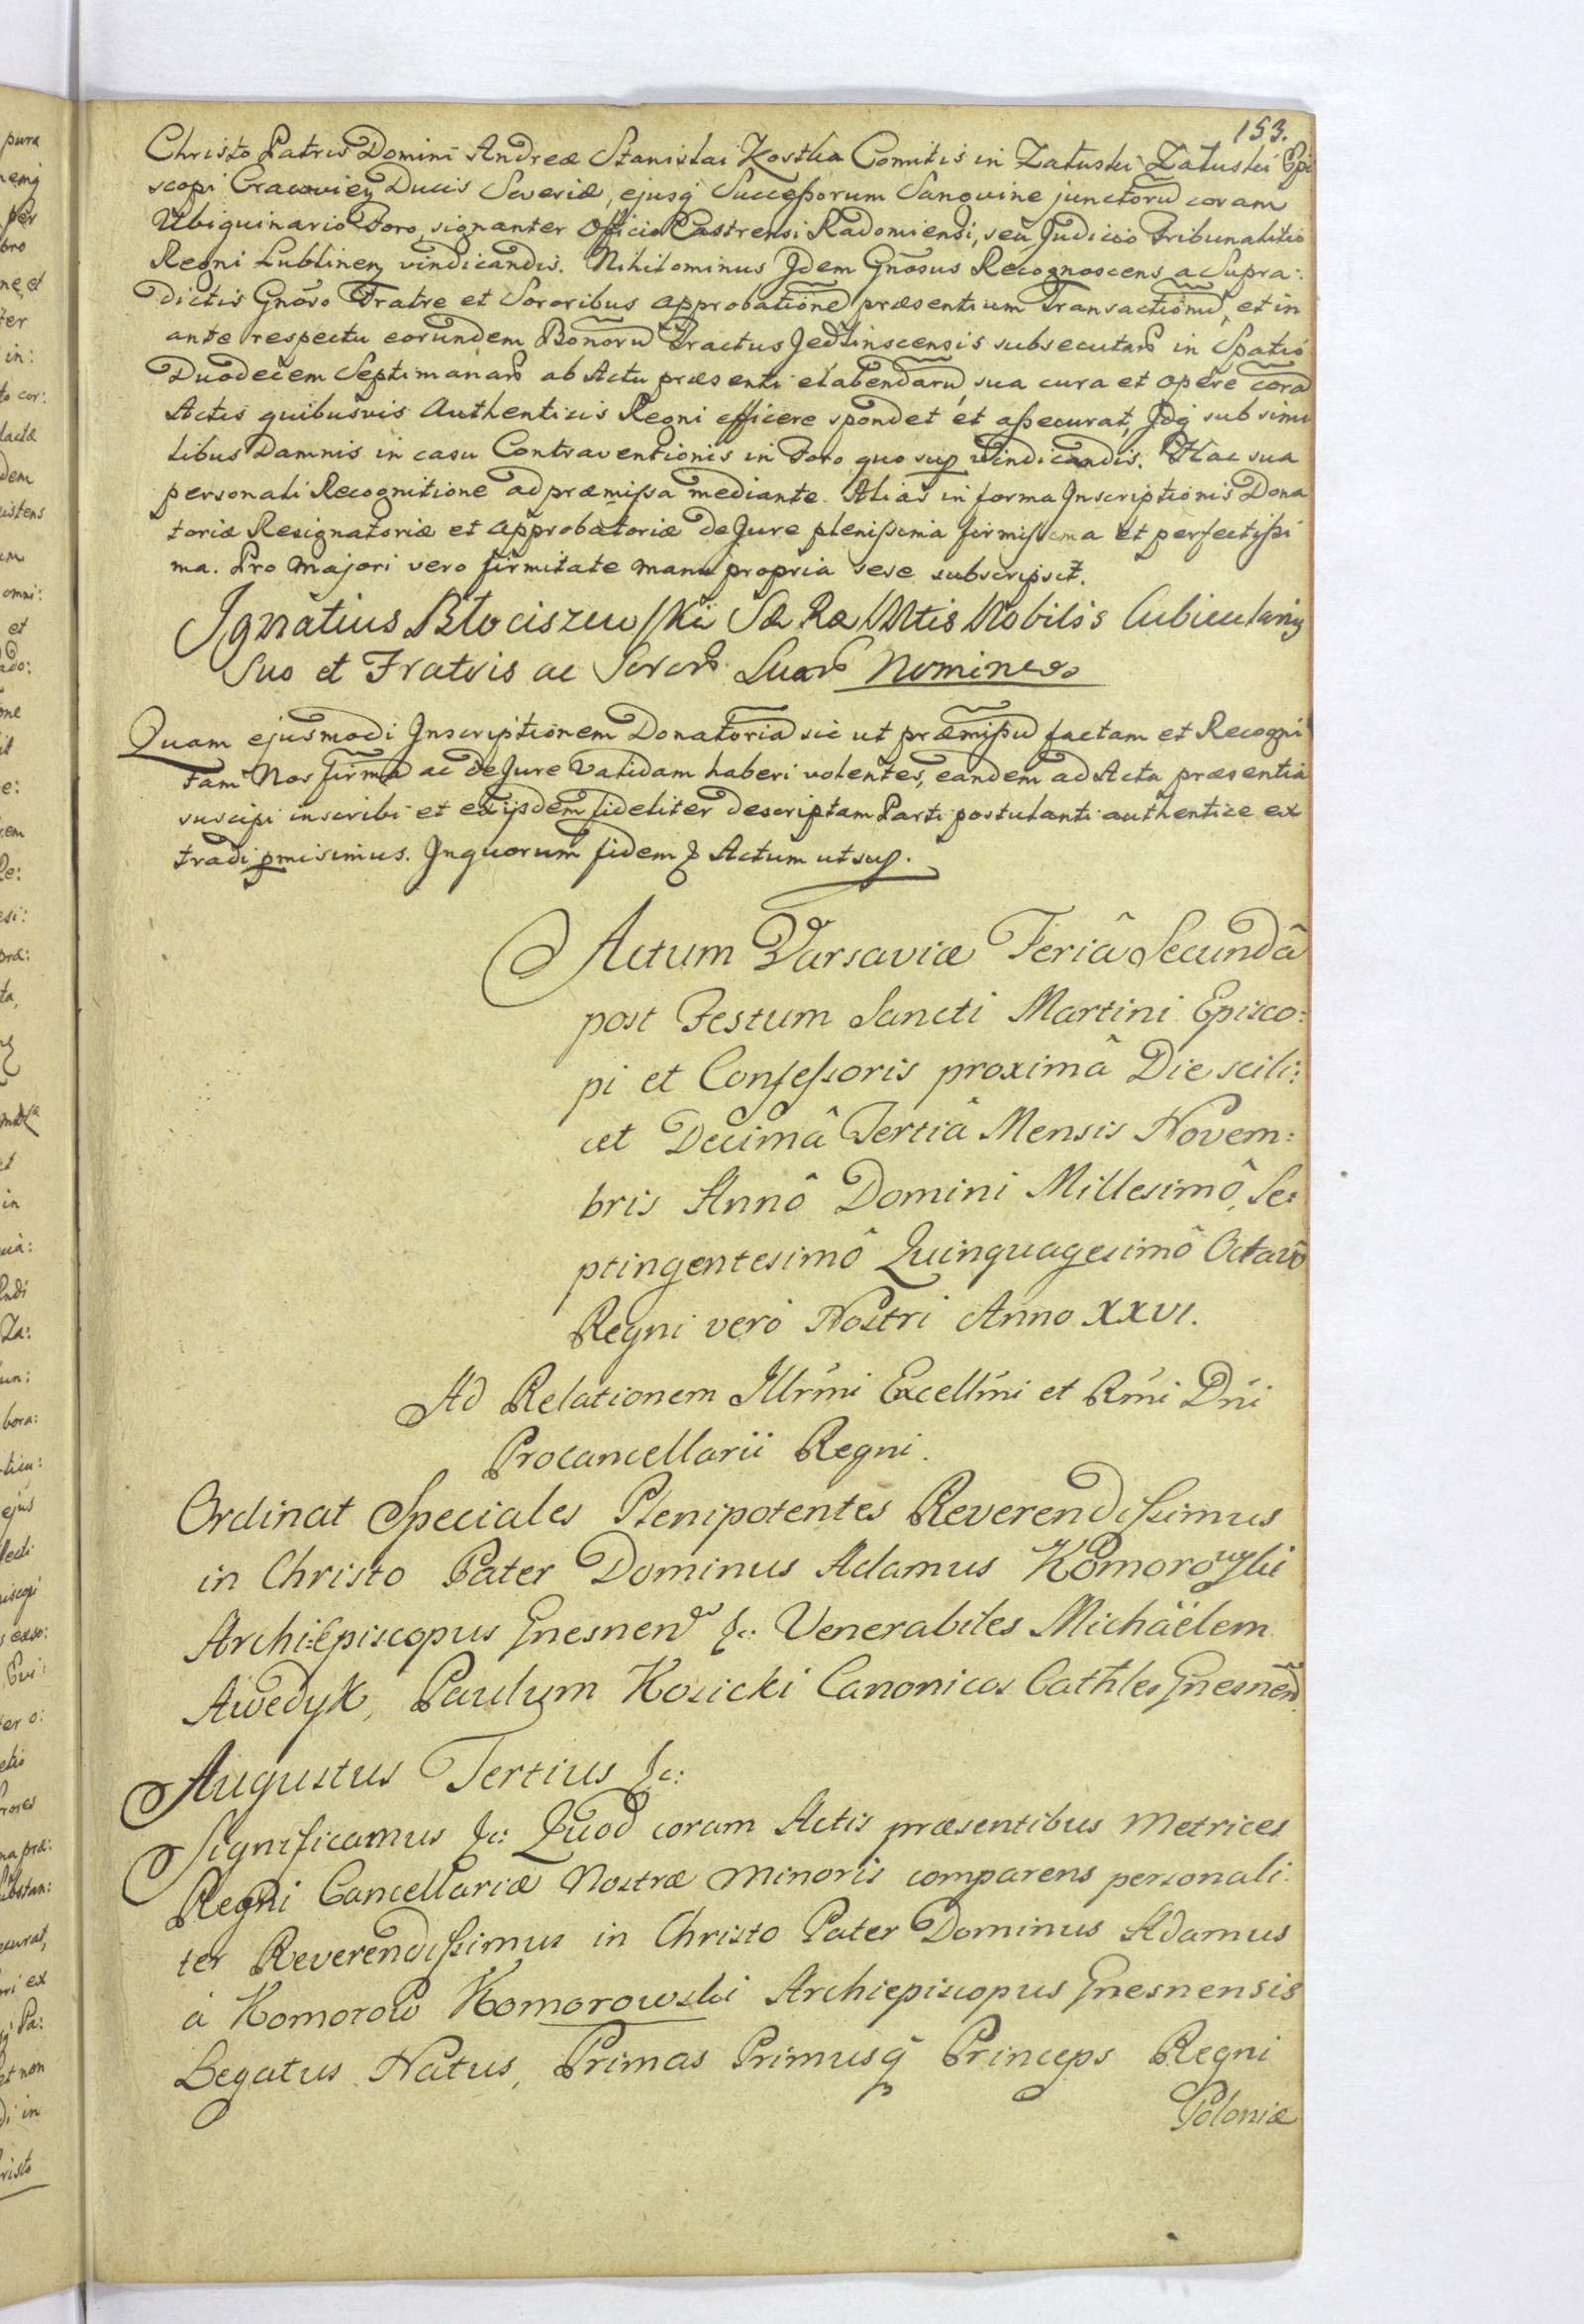 153.
Christo Patris Domini Andreæ Stanislai Kostka Comitis in Załuskie Załuski Epi
scopi Cracovien Ducis Severiæ, ejusq Successorum Sanguine junctorũ coram
Ubiquinario Foro signanter Officio Castrensi Radomiensi, seu Judicio Tribunalitio
Regni Lublinen vindicandis. Nihilominus Jdem Gnõsus Recognoscens a Supra:
Dictis Gnõso Fratre et Sororibus approbatiõne præsentium Transactionũ, et in
ante respectu eorundem Bonorũ Tractus Jedlinscensis subsecutar in Spatio
Duodecem Septimanar ab Actu præsenti elabendarũ sua cura et opere corã
Actis quibusvis Authenticis Regni efficere spondet et assecurat, Jdq sub simi
libus Damnis in casu Contraventionis in Foro quo sup vindicandis. Hac sua
personali Recognitione ad præmissa mediante. Alias in forma Jnscriptionis Dona
toriæ Resignatoriæ et Approbatoriæ De Jure plenissima firmissima et perfectissi
ma. Pro Majori vero firmitate manu propria sese subscripsit.
Jgnatius Błociszewski Sæ Ræ Mtis Nobilis Cubicularig
Suo et Fratris ac Soror Suar Nomine
Quam ejusmodi Jnscriptionem Donatoriã sic ut præmissũ factam et Recogni
tam Nos firmã ac de Jure Validam haberi volentes, eandem ad Acta præsentia
suscipi inscribi et ex ijsdem fideliter descriptam Parti postulanti authentice ex
tradi pmisimus. Jnquorum fidem & Actum ut sup.
Actum Varsaviæ Feriâ Secundâ
post Festum Sancti Martini Episco:
pi et Confessoris proximâ Die scili:
cet Decimâ Tertiâ Mensis Novem:
bris Annô Domini Millesimô, Se:
ptingentesimô Quinquagesimô Octavô
Regni verò Nostri Anno XXVI.
Ad Relationem Jllrmi Excellmi et Rmi Dni
Procancellarii Regni.
Ordinat Speciales Plenipotentes Reverendissimus
in Christo Pater Dominus Adamus Komorowski
Archi:Episcopus Gnesnen &c: Venerabiles Michäelem
Awedyk, Paulum Kosicki Canonicos Cathles Gnesnen
Augustus Tertius &c:
Significamus &c: Quod coram Actis præsentibus Metrices
Regni Cancellariæ Nostræ Minoris comparens personali:
ter Reverendissimus in Christo Pater Dominus Adamus
à Komorow Komorowski Archiepiscopus Gnesnensis
Legatus Natus, Primas Primusq Princeps Regni
Poloniæ